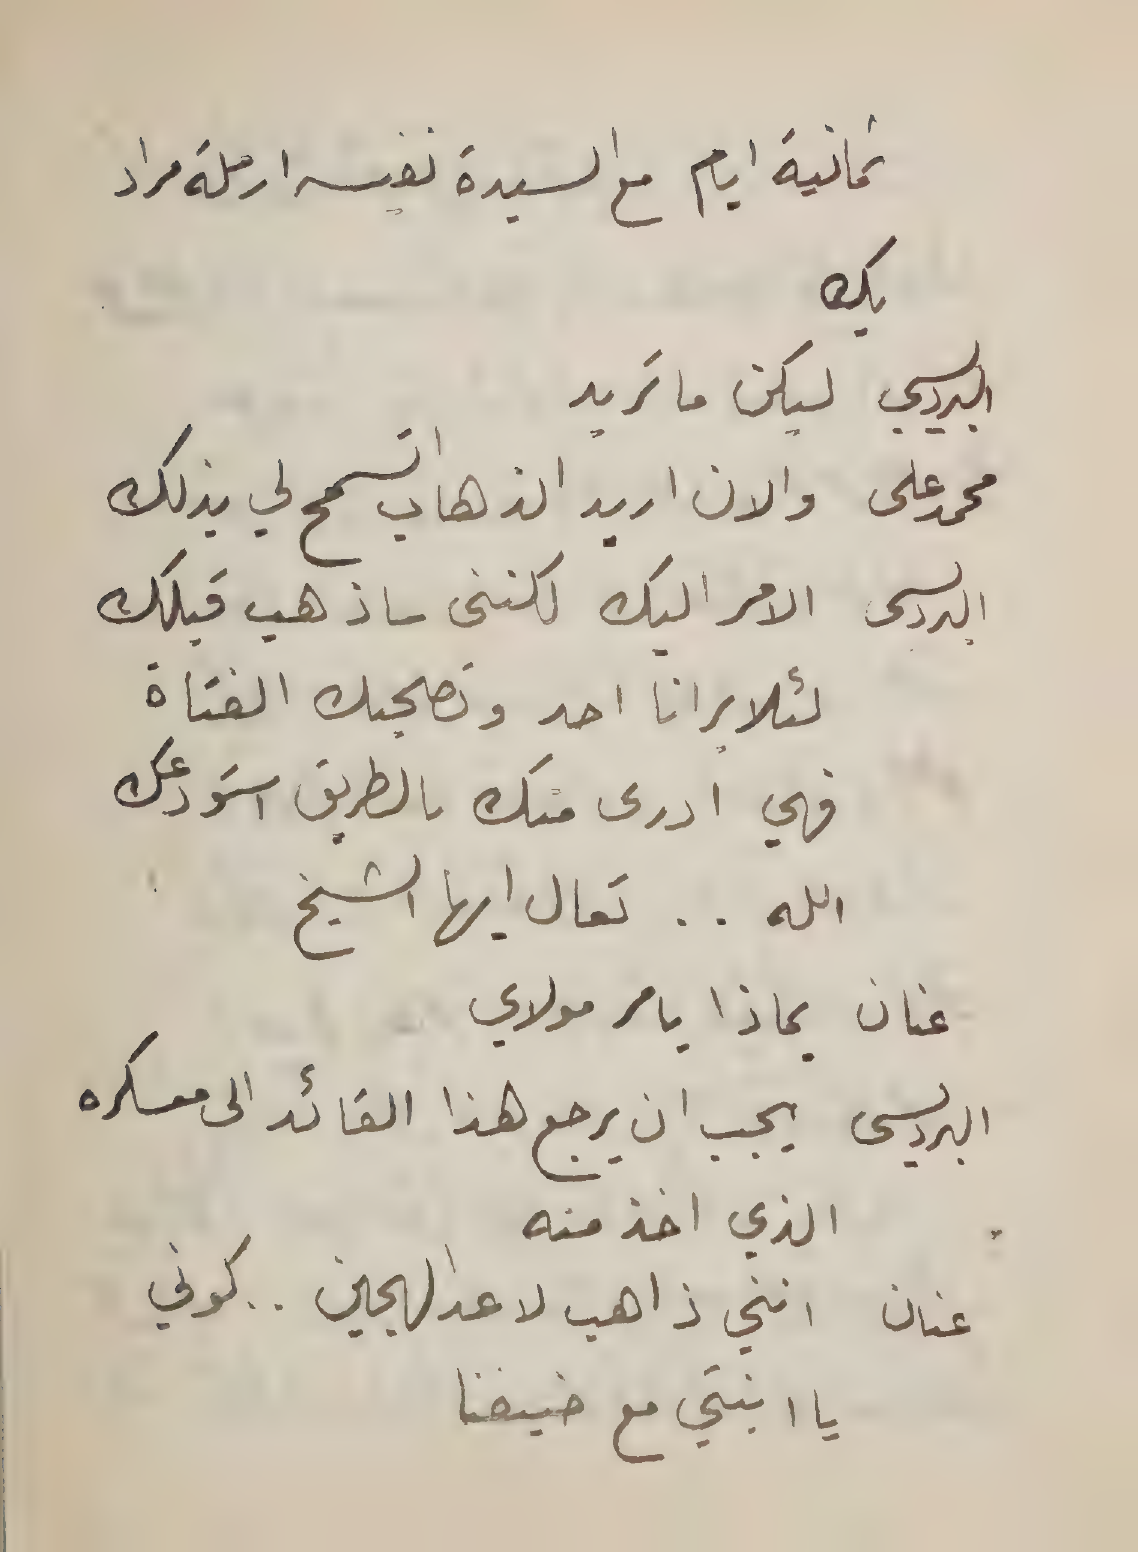 ثمانية ايام مع السيدة نفيسه ارملة مراد
بك
البرديسي ليكن ما تريد
محمد على والان اريد الذهاب اتسمح لي بذلك
البرديسى الامر اليك لكننى ساذهب قبلك
لئلا يرانا احد وتصحبك الفتاة
فهي ادرى منك بالطريق استودعك
الله . . تعال ايها الشيخ
عنان بماذا يامر مولاي
البرديسى يجب ان يرجع هذا القائد الى معسكره
الذي اخذ منه
عنان انني ذاهب لاعد الهجين . . كوني
يا ابنتي مع ضيفنا